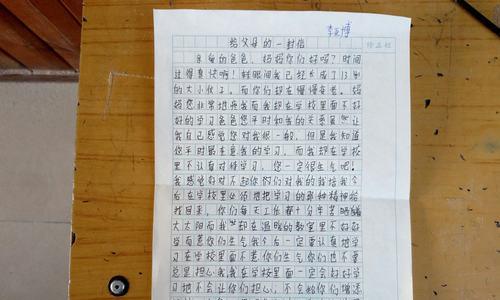 李义博
给父母的一封信
亲爱的爸爸、妈妈你们好吗？时间
过得真快啊！转眼间我已经长成了13岁
的大小伙子。而你们却在慢慢变老。妈妈
您非常地疼我而我却在学校里面不好
好的学习爸爸您平时和我的关系 让
我自己感觉您对我很一般，但是我知道
您平时最在意我的学习，而我却在学校
里不认真对待学习，您一定很生气吧！
我感觉 对不起你们对我的栽培我今
后在学校里必须把学习的那种精神给
找回来，你们每天工作都十分辛苦
大太阳而我却在温暖的教室里不好好
学而惹你们生气我今后一定要认真地学
习在学校里面不惹你们生气你们也不要
总是担心我我在学校里面一定会好好学
习把不会让你们担心，不会给你们增添